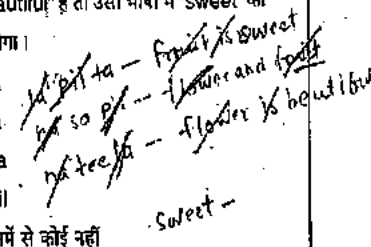 beautiful" है तो उसी भाषा में "sweet" का
गा।
ta pil ta - fruit is sweet
na so pi - flower and fruit
na tee ta - flower is beautiful
sweet -
में से कोई नहीं